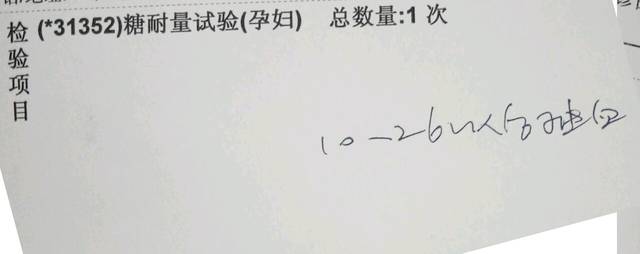 检验项目
(*31352)糖耐量试验(孕妇) 总数量:1 次
10-26以后